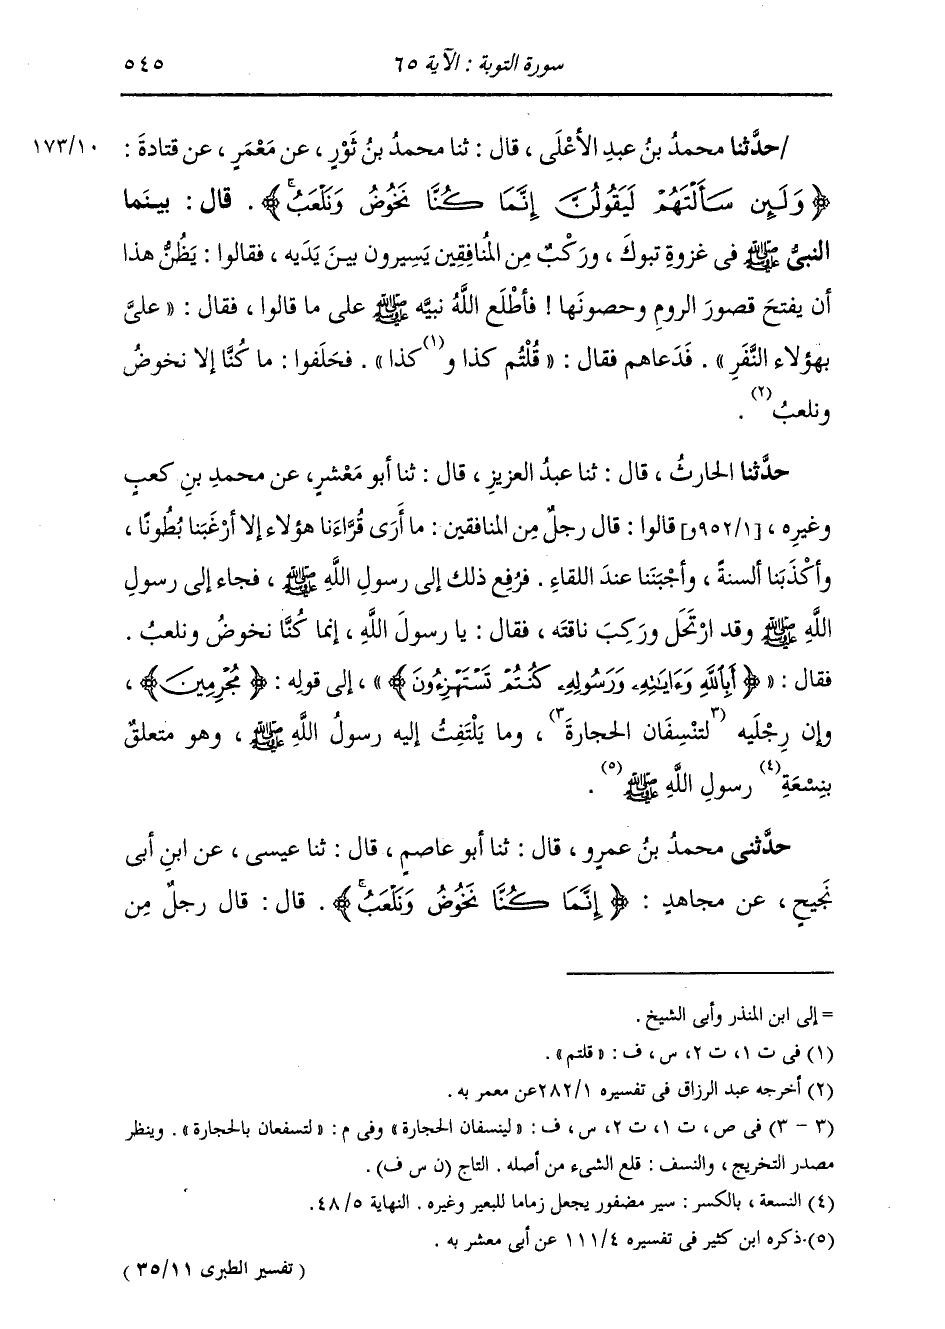 سورة التوبة : الآية ٦٥ ٥٤٥
/حدَّثنا محمدُ بنُ عبدِ الأعْلَى ، قال : ثنا محمدُ بنُ ثَوْرٍ ، عن مَعْمَرٍ ، عن قتادةَ : ١٧٣/١٠
﴿ وَلَئِن سَأَلْتَهُمْ لَيَقُولُنَّ إِنَّمَا كُنَّا نَخُوضُ وَنَلْعَبُ ﴾ . قال : بينَما
النبىُّ ﷺ فى غزوةِ تبوكَ ، ورَكْبٌ مِن المُنافِقِين يَسِيرون بينَ يَدَيه ، فقالوا : يَظُنُّ هذا
أن يفتحَ قصورَ الرومِ وحصونَها ! فأطْلَع اللَّهُ نبيَّه ﷺ على ما قالوا ، فقال : « علىَّ
بهؤلاء النَّفَرِ » . فَدَعاهم فقال : « قُلْتُم كذا و(١)كذا » . فحَلَفوا : ما كُنَّا إلا نخوضُ
ونلعبُ(٢) .
حدَّثنا الحارثُ ، قال : ثنا عبدُ العزيزِ ، قال : ثنا أبو مَعْشرٍ، عن محمدِ بنِ كعبٍ
وغيرِه ، [٩٥٢/١و] قالوا : قال رجلٌ مِن المنافقين : ما أَرَى قُرَّاءَنا هؤلاء إلا أرْغَبَنا بُطُونًا ،
وأكْذَبَنا ألسنةً ، وأجْبَنَنا عندَ اللقاءِ . فرُفِع ذلك إلى رسولِ اللَّهِ ﷺ ، فجاء إلى رسولِ
اللَّهِ ﷺ وقد ارْتَحَل ورَكِبَ ناقتَه ، فقال : يا رسولَ اللَّهِ ، إنما كُنَّا نخوضُ ونلعبُ .
فقال : « ﴿ أَبِاللَّهِ وَءَايَٰتِهِۦ وَرَسُولِهِۦ كُنتُمْ تَسْتَهْزِءُونَ ﴾ » ، إلى قولِه : ﴿ مُجْرِمِينَ ﴾ ،
وإن رِجْلَيه (٣لتَنْسِفَان الحجارةَ٣) ، وما يَلْتَفِتُ إليه رسولُ اللَّهِ ﷺ ، وهو متعلقٌ
بنِسْعَةِ(٤) رسولِ اللَّهِ ﷺ(٥) .
حدَّثنى محمدُ بنُ عمرٍو ، قال : ثنا أبو عاصمٍ ، قال : ثنا عيسى ، عن ابنِ أبى
نَجيحٍ ، عن مجاهدٍ : ﴿ إِنَّمَا كُنَّا نَخُوضُ وَنَلْعَبُ ﴾ . قال : قال رجلٌ مِن
= إلى ابن المنذر وأبى الشيخ .
(١) فى ت ١، ت ٢، س ، ف : « قلتم » .
(٢) أخرجه عبد الرزاق فى تفسيره ٢٨٢/١ عن معمر به .
(٣ - ٣) فى ص ، ت ١، ت ٢، س ، ف : « لينسفان الحجارة » وفى م : « لتسفعان بالحجارة » . وينظر
مصدر التخريج ، والنسف : قلع الشىء من أصله . التاج (ن س ف) .
(٤) النسعة ، بالكسر : سير مضفور يجعل زماما للبعير وغيره . النهاية ٤٨/٥.
(٥) ذكره ابن كثير فى تفسيره ١١١/٤ عن أبى معشر به .
( تفسير الطبرى ٣٥/١١ )